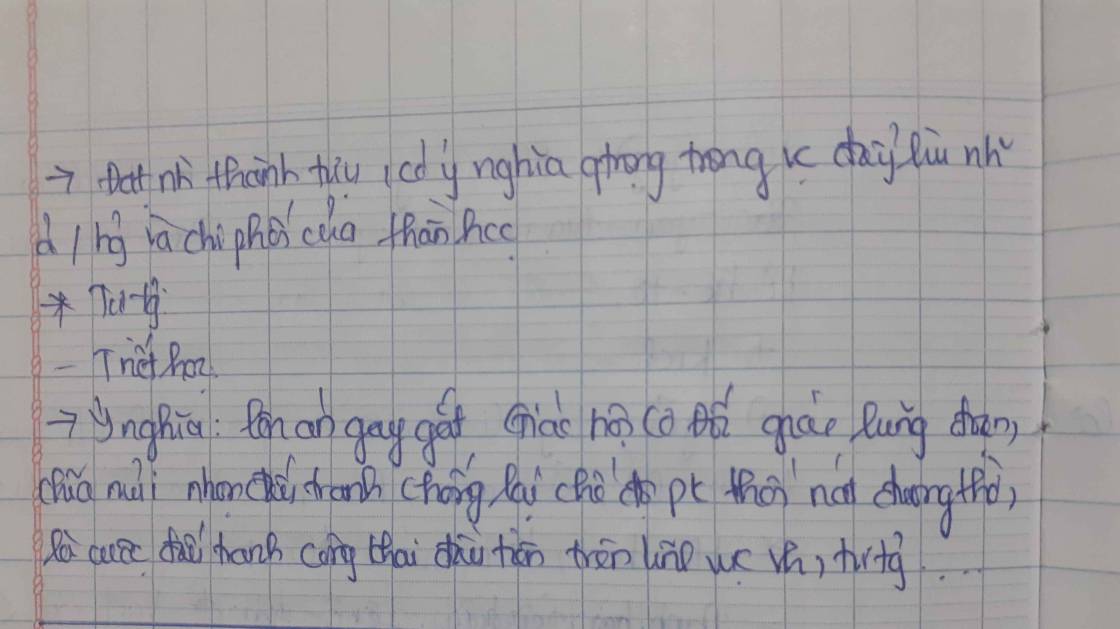 → Đạt nh̀ thành tựu, có ý nghĩa qtrọng trong vc đẩy lùi nh~
ả/hg̉ và chi phối của thần học
* Tư tg̉
- Triết học
→ Ý nghĩa: lên án gay gắt Giáo hội Cơ Đốc giáo lũng đoạn,
chĩa mũi nhọn đấu tranh chống lại chế độ pk thối nát đương thờ,
là cuộc đấu tranh công khai đầu tiên trên lĩnh vực vh, tư tg̉ ....